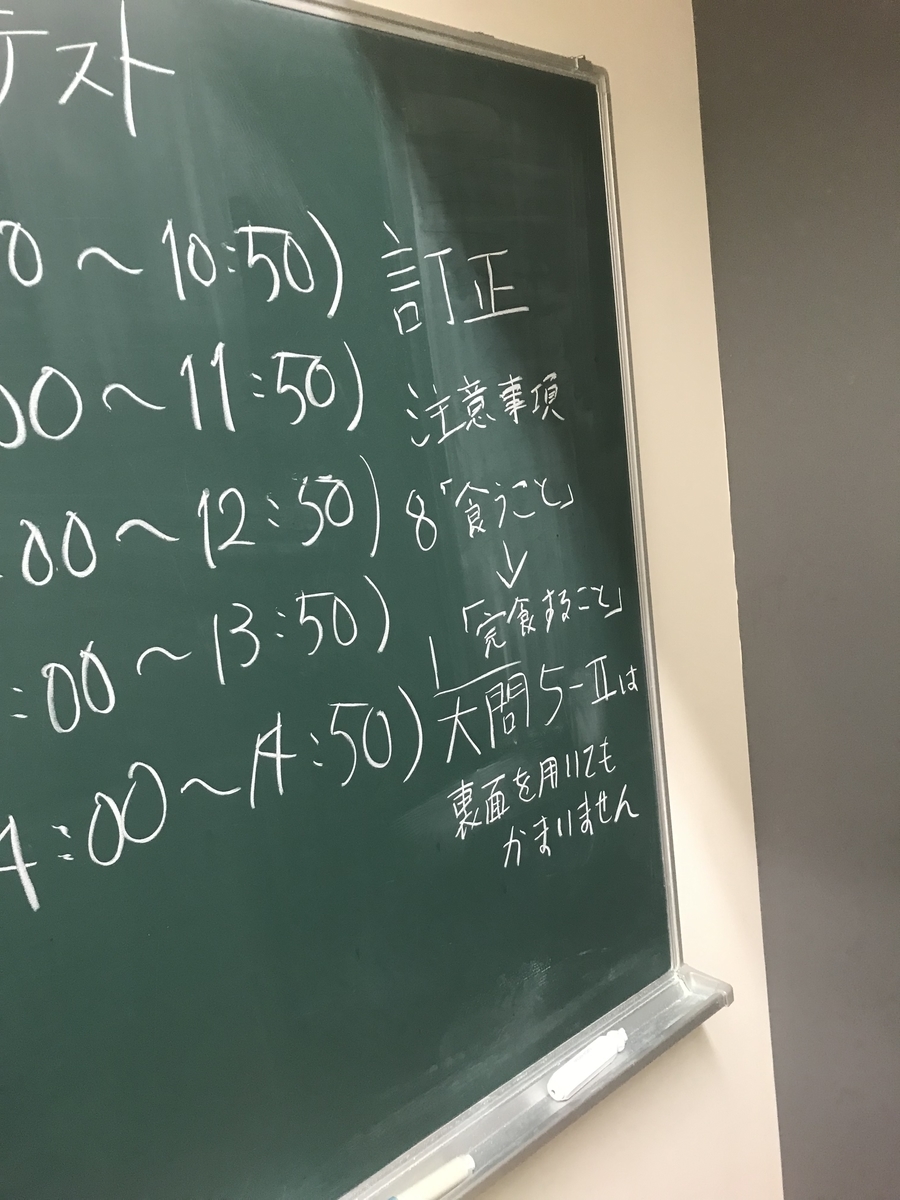 テスト
0 ～ 10:50)
00 ～ 11:50)
00 ～ 12:50)
:00 ～ 13:50)
4:00 ～ 14:50)
訂正
注意事項
8「食うこと」
↓
「完食すること」
大問5-Ⅱは
裏面を用いても
かまいません